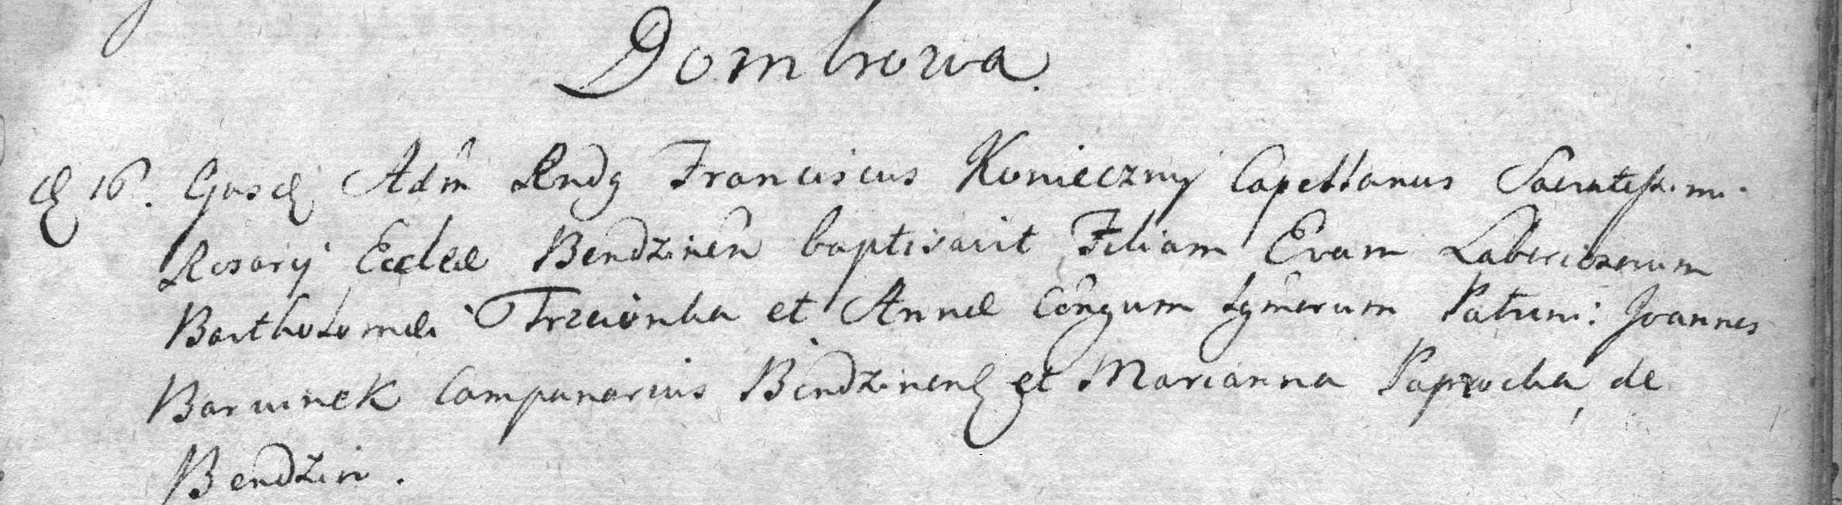 Dombrowa.
16. Ejusd Adm Rndg Franciscus Konieczny Capellanus Sacratissimi
Rosarij Eccleæ Bendzinen baptisavit Filiam Evam Laboriosorum
Bartholomæi Trzcionka et Annæ Congum Lgmorum Patrini: Joannes
Barwinek Campanarius Bendzinens et Marianna Paprocka de
Bendzin.